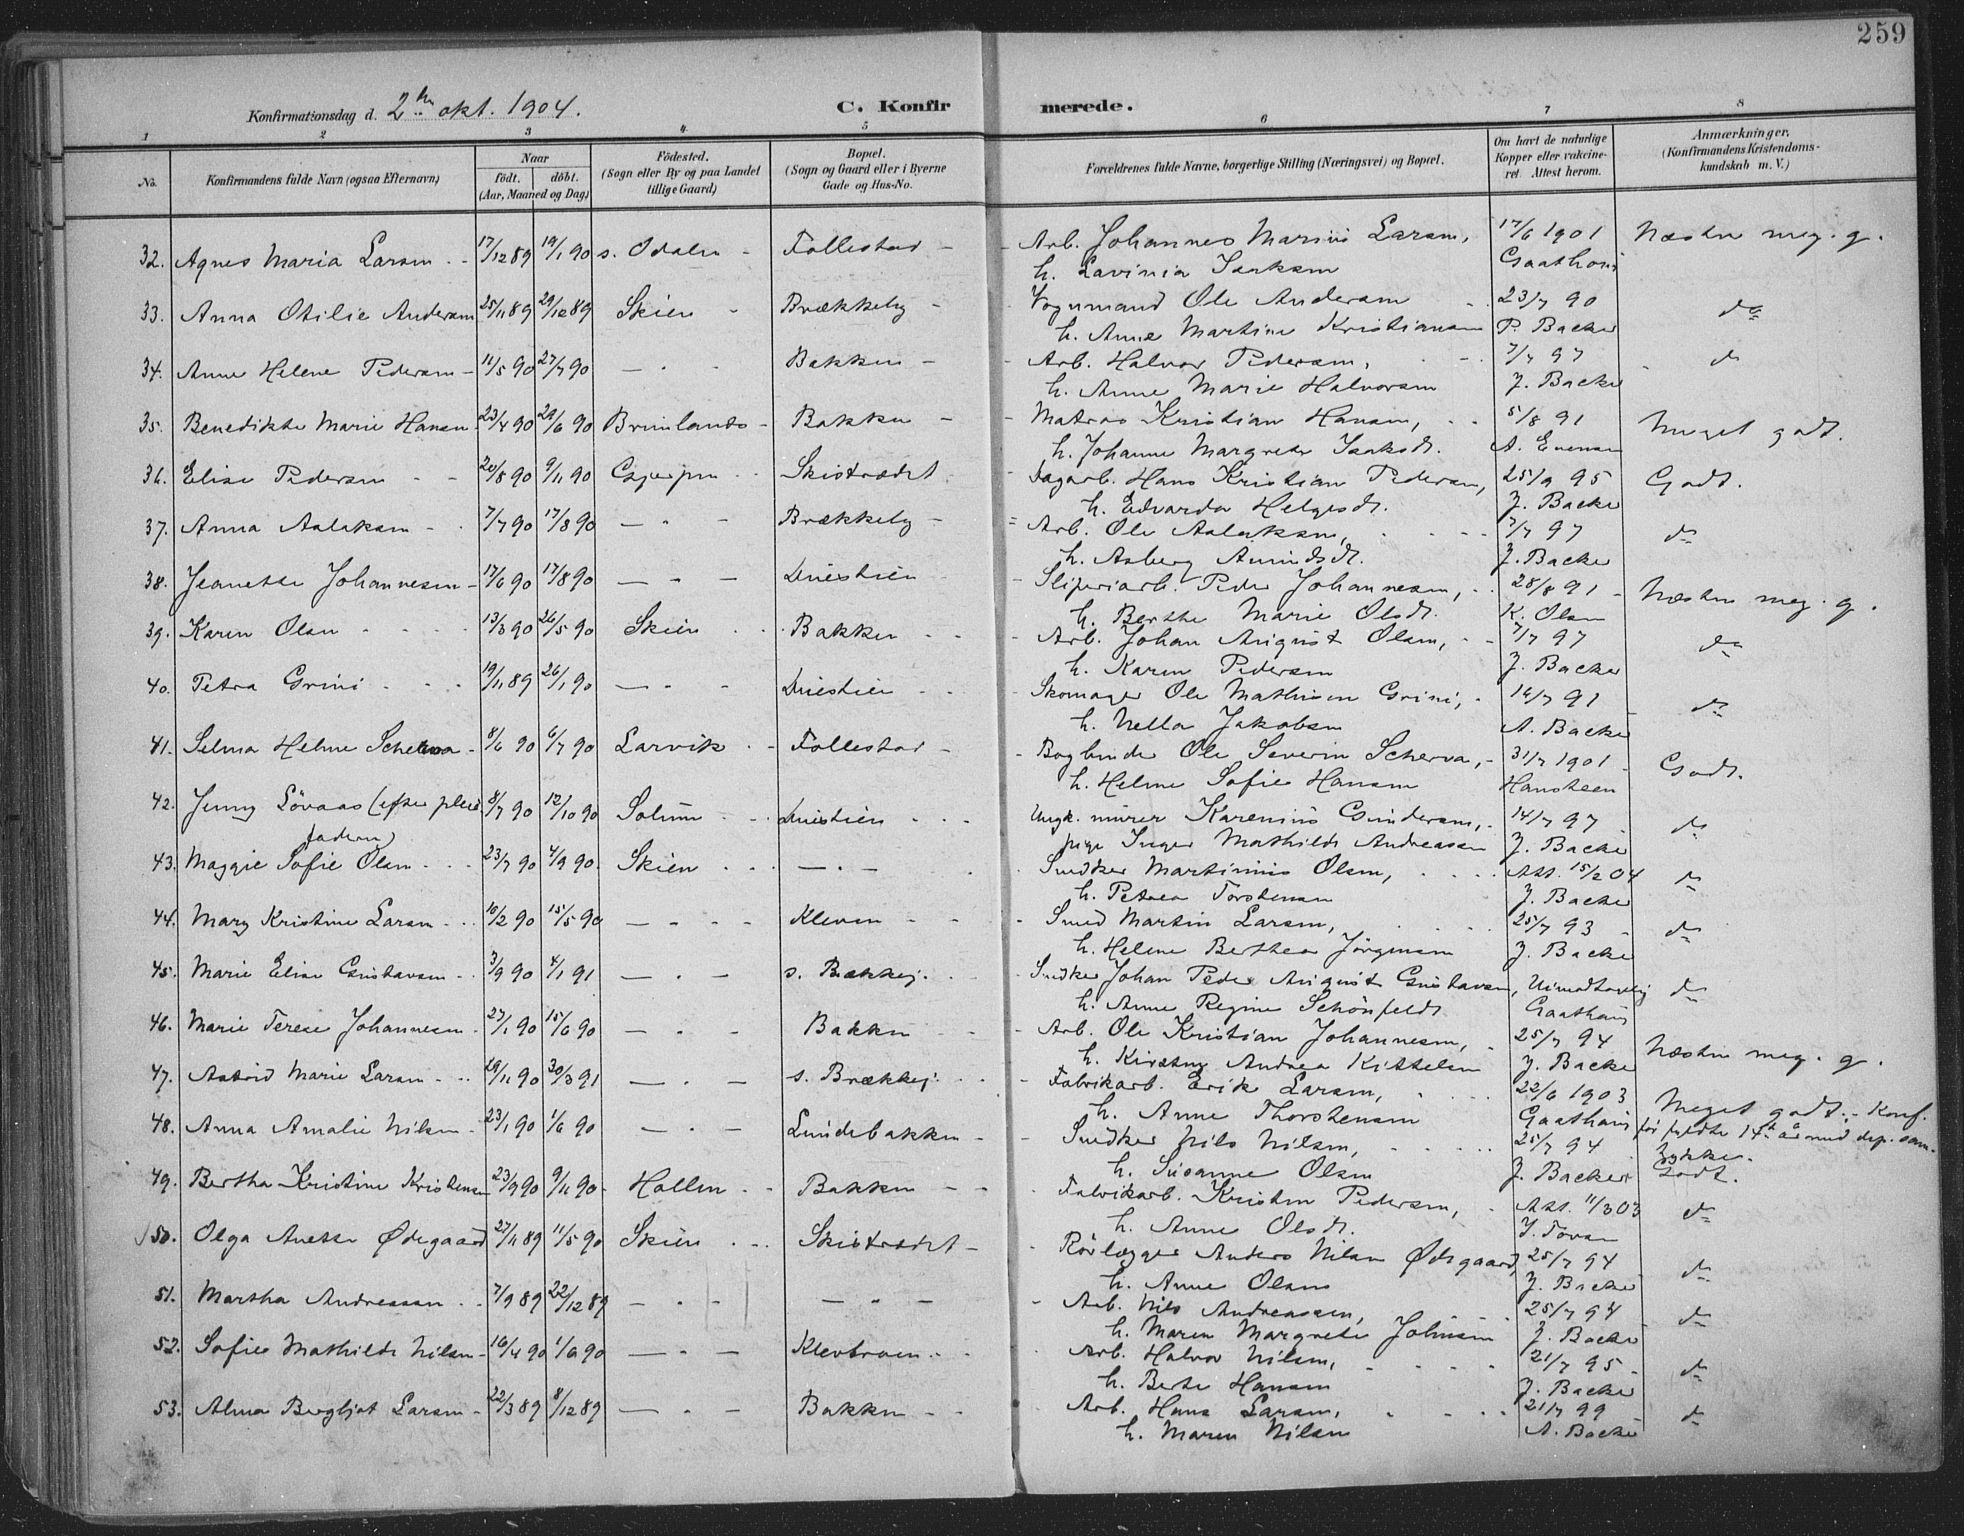 259
Konfirmationsdag d. 2den okt. 1904.
C. Konfirmerede.
1 2 3 4 5 6 7 8
No.
Konfirmandens fulde Navn (ogsaa Efternavn)
Naar
födt. döbt.
(Aar, Maaned og Dag)
Födested.
(Sogn eller By og paa Landet
tillige Gaard)
Bopæl.
(Sogn og Gaard eller i Byerne
Gade og Hus-No.
Forældrenes fulde Navne, borgerlige Stilling (Næringsvei) og Bopæl.
Om havt de naturlige
Kopper eller vakcine-
ret. Attest herom.
Anmærkninger.
(Konfirmandens Kristendoms-
kundskab m. V.)
32. Agnes Maria Larsen 17/12 89 19/1 90 s. Odalen Follestad Arb. Johannes Marius Larsen, 17/6 1901 Næsten meg. g.
h. Lavinia Isaksen Gaathaug
33. Anna Otilie Andersen 25/11 89 29/12 89 Skien Brækkeby Vognmand Ole Andersen 23/7 90 do
h. Anne Martine Kristiansen P. Backer
34. Anne Helene Pedersen 11/5 90 27/7 90 — " — Bakken Arb. Halvor Pedersen, 7/7 97 do
h. Anne Marie Halvorsen J. Backer
35. Benedikte Marie Hansen 23/4 90 29/6 90 Brunlanes Bakken Matros Kristian Hansen, 5/8 91 Meget godt.
h. Johanne Margrete Isaksdt. A. Evensen
36. Elise Pedersen 20/8 90 9/11 90 Gjerpen Skistrædet Dagarb. Hans Kristian Pedersen, 25/9 95 Godt.
h. Edvarda Helgesdt. J. Backer
37. Anna Aslaksen 7/7 90 17/8 90 — " — Brækkeby Arb. Ole Aslaksen, 7/7 97 do
h. Asberg Amundsdt. J. Backer
38. Jeanette Johannesen 17/6 90 17/8 90 — " — Duestien Sliperiarb. Peder Johannesen, 28/8 91 Næsten meg. g.
h. Berthe Marie Olsdt. K. Olsen
39. Karen Olsen 13/3 90 26/5 90 Skien Bakken Arb. Johan August Olsen, 7/7 97 do
h. Karen Pedersen J. Backer
40. Petra Grini 19/11 89 26/1 90 — " — Duestien Skomager Ole Mathisen Grini, 14/7 91 do
h. Nella Jakobsen A. Backer
41. Selma Helene Scherva 8/6 90 6/7 90 Larvik Follestad Bogbinder Ole Severin Scherva, 31/7 1901 Godt.
h. Helene Sofie Hansen Hansteen
42. Jenny Lövaas (efter pleie 8/7 90 12/10 90 Solum Duestien Ungk. murer Karenius Gundersen, 14/7 97 do
faderen) pige Inger Mathilde Andreassen J. Backer
43. Maggie Sofie Olsen 23/7 90 4/9 90 Skien — " — Snedker Martinius Olsen, Att. 15/2 04 do
h. Petrea Torstensen J. Backer
44. Mary Kristine Larsen 16/2 90 15/5 90 — " — Kleven Smed Martin Larsen, 25/7 93 do
h. Helene Berthea Jörgensen J. Backer
45. Marie Elise Gustavsen 3/9 90 4/1 91 — " — s. Brækkeg. Snedker Johan Peder August Gustavsen, Uimodtagelig do
h. Anne Regine Schönfeldt Gaathaug
46. Marie Terese Johannesen 27/1 90 15/6 90 — " — Bakken Arb. Ole Kristian Johannesen, 25/7 94 Næsten meg. g.
h. Kirsten Andrea Kittelsen J. Backer
47. Astrid Marie Larsen 29/11 90 30/3 91 — " — s. Brækkeg. Fabrikarb. Erik Larsen, 22/6 1903 Meget godt. - Konf.
h. Anne Thorstensen Gaathaug før fyldte 14 år med dep. sam-
48. Anna Amalie Nilsen 23/1 90 1/6 90 — " — Lundebakken Snedker Nils Nilsen, 25/7 94 tykke.
h. Susanne Olsen J. Backer
49. Bertha Kristine Kristensen 23/9 90 9/11 90 Hollen Bakken Fabrikarb. Kristen Pedersen, Att. 11/3 03 Godt. do
h. Anne Olsdt. J. Tovsen
50. Olga Anette Ødegaard 27/11 89 11/5 90 Skien Skistrædet Rörlægger Anders Nilsen Ødegaard, 25/7 94 do
h. Anne Olsen J. Backer
51. Martha Andreassen 7/9 89 22/12 89 — " — — " — Arb. Nils Andreassen, 25/7 94 do
h. Maren Margrete Johnsen J. Backer
52. Sofie Mathilde Nilsen 16/4 90 1/6 90 — " — Klevbroen Arb. Halvor Nilsen, 21/7 95 do
h. Berte Hansen J. Backer
53. Alma Bergljot Larsen 22/3 89 8/12 89 — " — Bakken Arb. Hans Larsen, 21/7 99 do
h. Maren Nilsen A. Backer